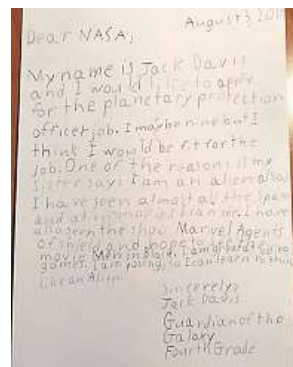 August 3, 201
Dear NASA,
My name is Jack Davis
and I would like to apply
for the planetary protection
officer job. I may be nine but I
think I would be fit for the
job. One of the reasons is my
sister says I am an alien also
I have seen almost all the space
and alien movies I can see. I have
also seen the show Marvel Agents
of Shield and hope to see the
movie Men in Black. I am great at
games. I am young, so I can learn to think
like an Alien.
Sincerely,
Jack Davis
Guardian of the
Galaxy
Fourth Grade